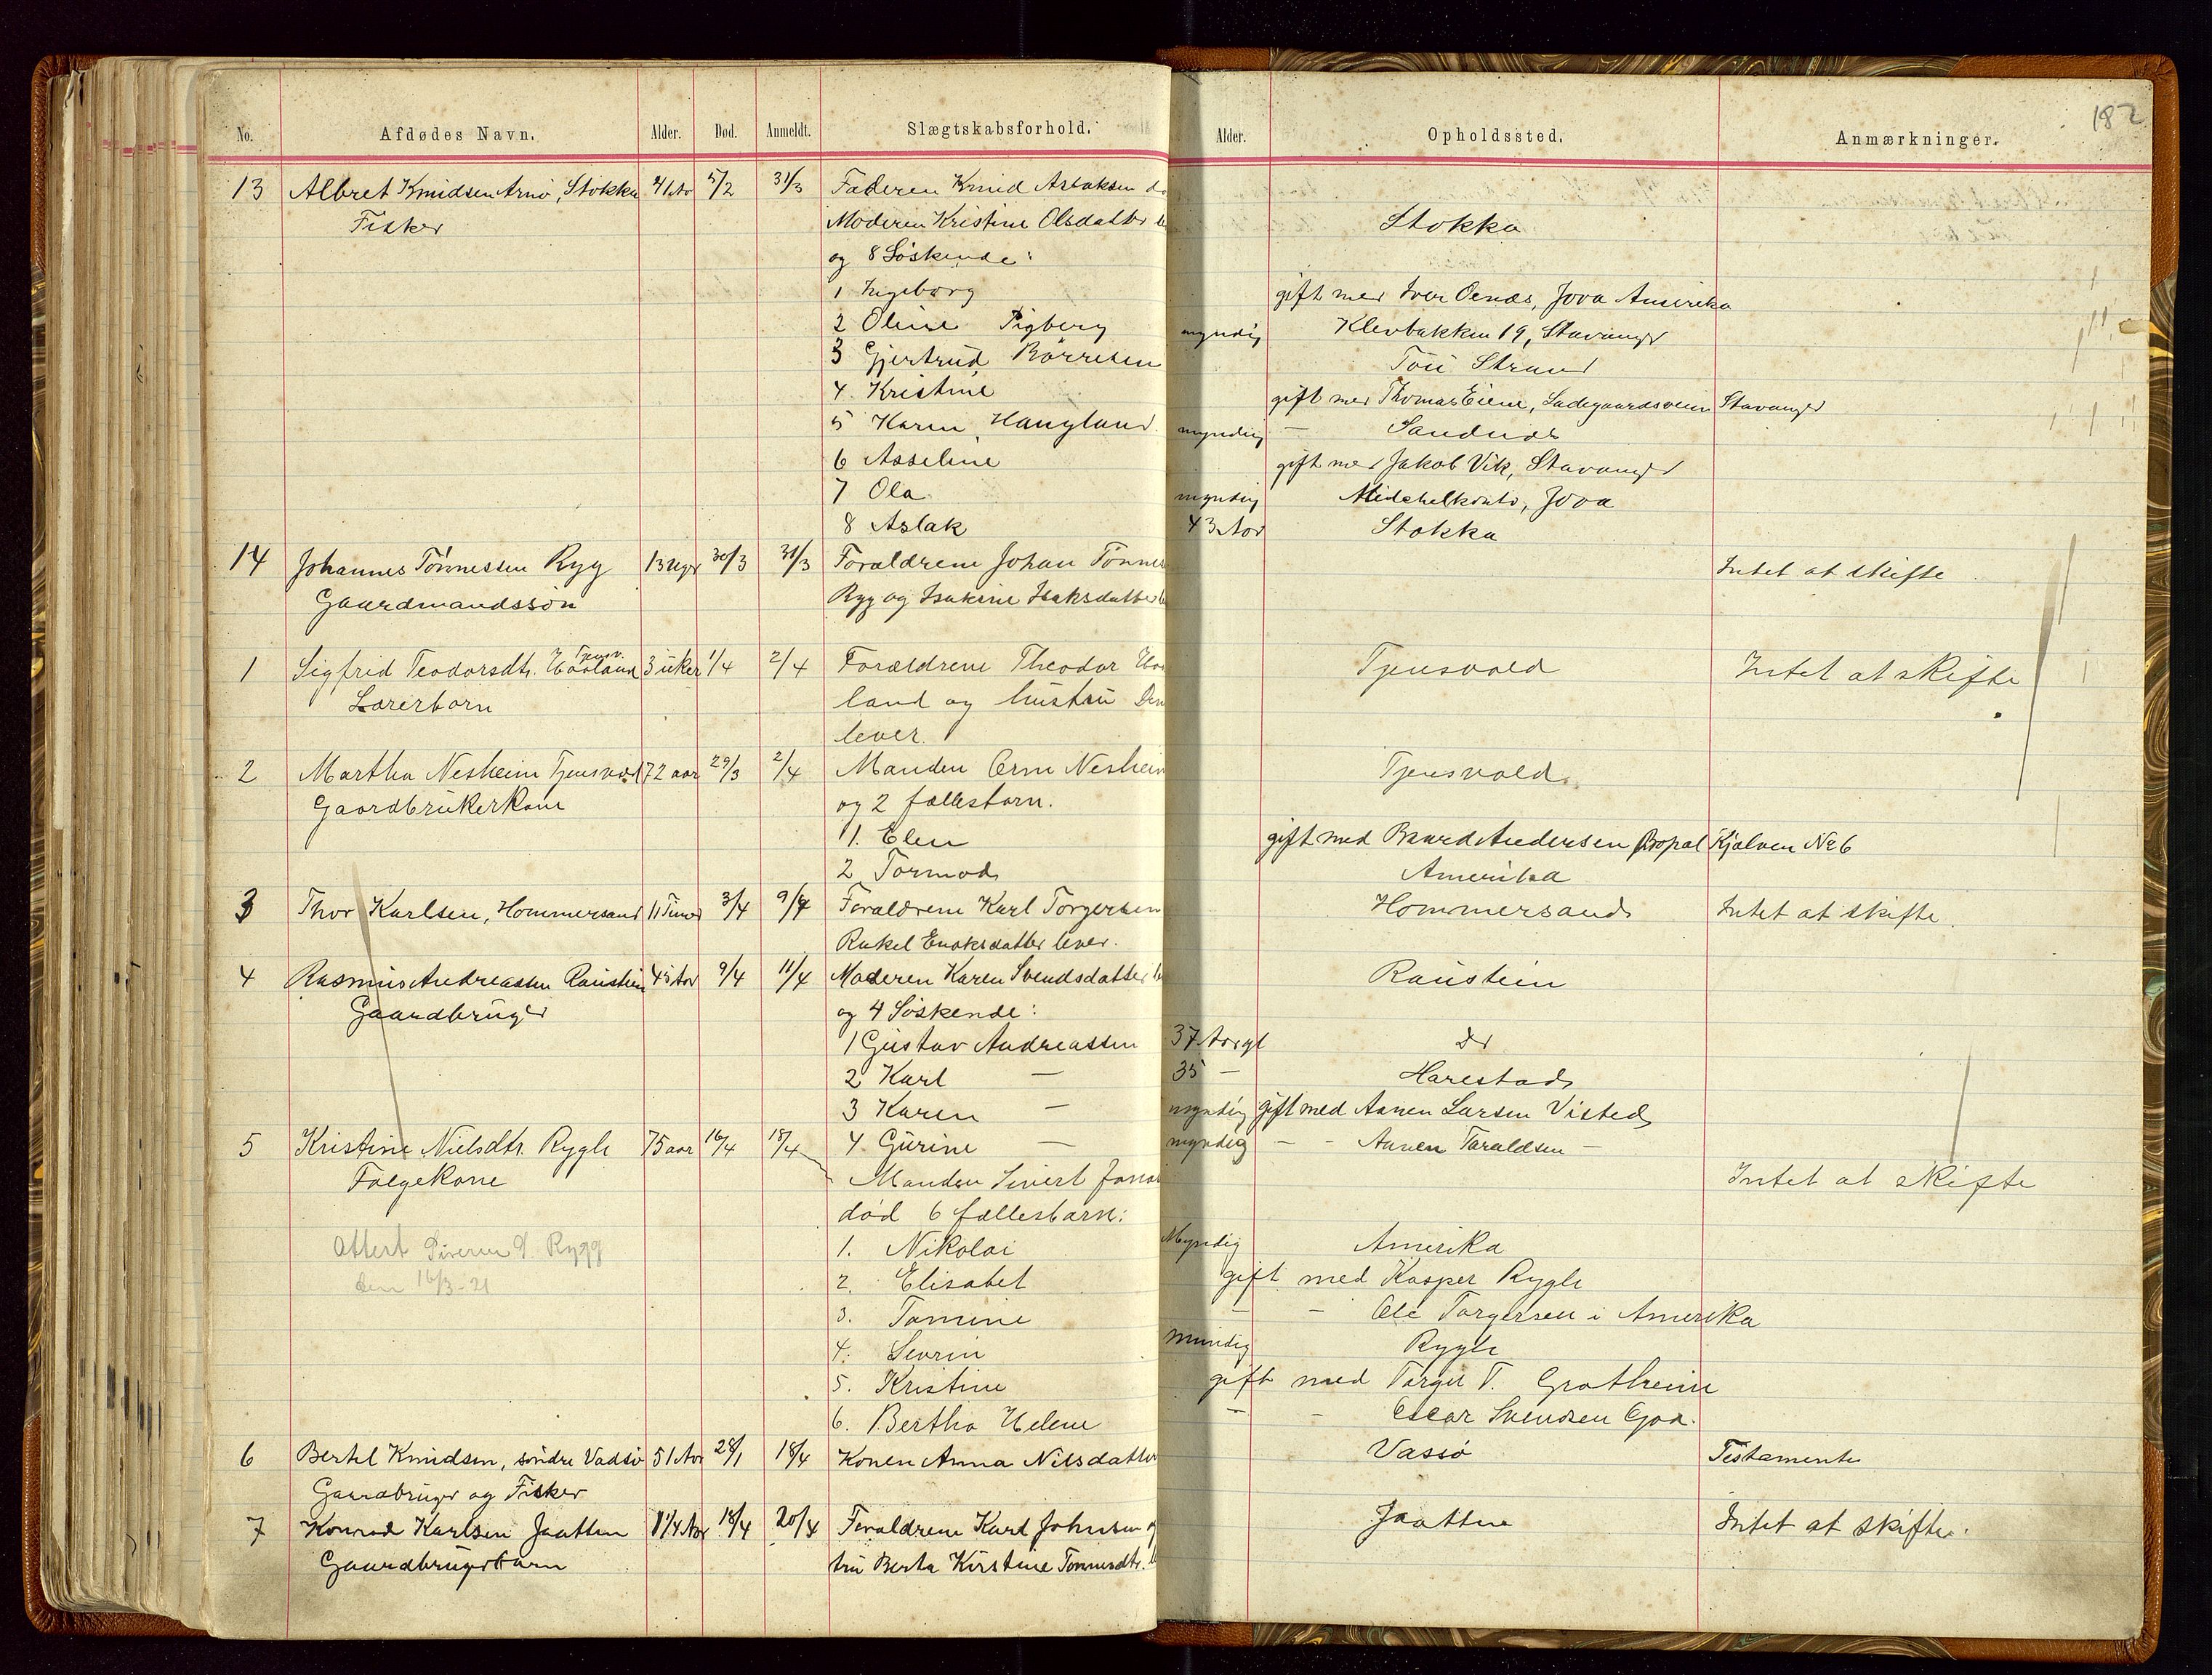 182
No. Afdødes Navn. Alder. Død. Anmeldt. Slægtskabsforhold. Alder. Opholdssted. Anmærkninger.
13 Albret Knudsen Arnø, Stokka 41 Aar 5/2 31/3 Faderen Knud Aslaksen
Fisker Moderen Kristine Olsdatter Stokka
og 8 Søskende:
1 Ingeborg gift med Iver Oenæs, Jova Amerika
2 Oline Sigberg myndig Klevbakken 19, Stavanger
3 Gjertrud Børresen Tøu Strand
4 Kristine gift med Thomas Eiene, Ladegaardsveien Stavanger
5 Karen Haugland myndig – Sandnes
6 Asseline gift med Jakob Vik, Stavanger
7 Ola myndig Jova
8 Aslak 43 Aar Stokka
14 Johannes Tønnessen Ryg 13 Uger 30/3 31/3 Forældrene Johan Tønnes
Gaardmandssøn Ryg og Isakine Isaksdatter Intet at skifte
1 Sigfrid Teodorsdtr. Haaland Tjensv. 3 uker 1/4 2/4 Forældrene Theodor Haa Tjensvold Intet at skifte
Lærerbarn land og hustru
lever
2 Martha Nesheim Tjensvold 72 aar 29/3 2/4 Manden Orm Nesheim Tjensvold
Gaardbrukerkone og 2 fællesbarn.
1. Elen gift med Baard Andersen Bopæl Kjelven No 6
2 Tormod Amerika
3 Thor Karlsen, Hommersand 11 Timer 3/4 9/4 Forældrene Karl Torgersen Hommersand Intet at skifte
Rakel Enoksdatter lever.
4 Rasmus Andreassen Raustein 45 Aar 9/4 11/4 Moderen Karen Svendsdatter Raustein
Gaardbruger og 4 Søskende:
1 Gustav Andreassen 37 Aar gl do
2 Karl – 35 – Harestad
3 Karen – myndig gift med Aanen Larsen Visted
5 Kristine Nielsdtr. Rygh 75 aar 16/4 18/4 4 Gurine – myndig – – Aanen Taraldsen –
Følgekone Manden Sivert Intet at skifte
død 6 fællesbarn:
Attest Siveren S. Rygg 1. Nikolai Myndig Amerika
den 16/3-21 2. Elisabet gift med Kasper Rygh
3. Tomine – – Ole Torgersen i Amerika
4. Sevrin mundig Rygh
5. Kristine gift med Torger T. Grotheim
6. Bertha Helene – – Oscar Svendsen Goa.
6 Bertel Knudsen, søndre Vadsø 51 Aar 28/1 18/4 Konen Anna Nilsdatter Vassø Testamente
Gaardbruger og Fisker
7 Konrad Karlsen Jaatten 1 1/4 Aar 18/4 20/4 Forældrene Karl Johnsen og Jaatten Intet at skifte.
Gaardbrugerbarn tru Berta Kirstine Tønnesdtr.